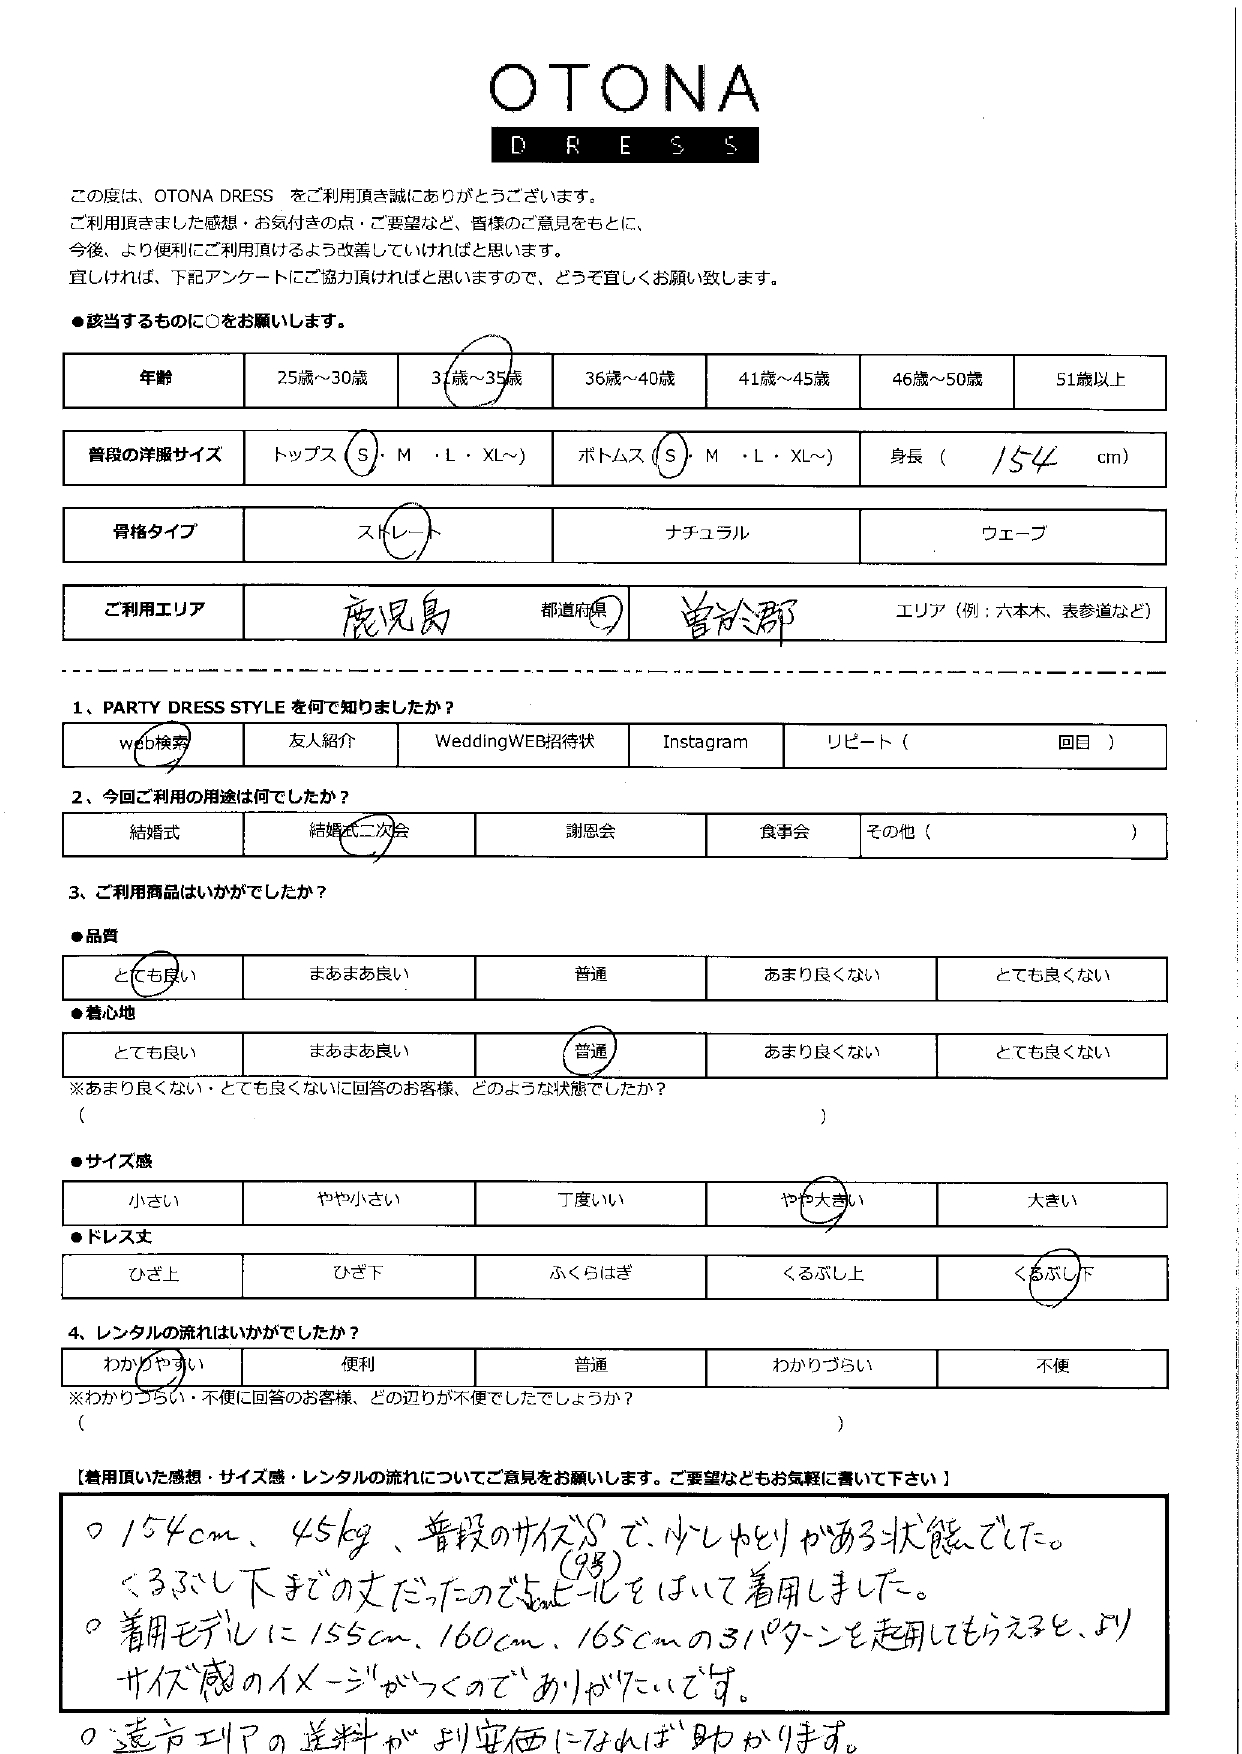 OTONA
DRESS
この度は、OTONA DRESS をご利用頂き誠にありがとうございます。
ご利用頂きました感想・お気付きの点・ご要望など、皆様のご意見をもとに、
今後、より便利にご利用頂けるよう改善していければと思います。
宜しければ、下記アンケートにご協力頂ければと思いますので、どうぞ宜しくお願い致します。
●該当するものに○をお願いします。
年齢 25歳～30歳 31歳～35歳 36歳～40歳 41歳～45歳 46歳～50歳 51歳以上
普段の洋服サイズ トップス (S・ M ・L ・ XL～) ボトムス (S・ M ・L ・ XL～) 身長 ( 154 cm)
骨格タイプ ストレート ナチュラル ウェーブ
ご利用エリア 鹿児島 都道府県 曽於郡 エリア（例：六本木、表参道など）
1、PARTY DRESS STYLE を何で知りましたか？
web検索 友人紹介 WeddingWEB招待状 Instagram リピート（ 回目 ）
2、今回ご利用の用途は何でしたか？
結婚式 結婚式二次会 謝恩会 食事会 その他（ ）
3、ご利用商品はいかがでしたか？
●品質
とても良い まあまあ良い 普通 あまり良くない とても良くない
●着心地
とても良い まあまあ良い 普通 あまり良くない とても良くない
※あまり良くない・とても良くないに回答のお客様、どのような状態でしたか？
（ ）
●サイズ感
小さい やや小さい 丁度いい やや大きい 大きい
●ドレス丈
ひざ上 ひざ下 ふくらはぎ くるぶし上 くるぶし下
4、レンタルの流れはいかがでしたか？
わかりやすい 便利 普通 わかりづらい 不便
※わかりづらい・不便に回答のお客様、どの辺りが不便でしたでしょうか？
（ ）
【着用頂いた感想・サイズ感・レンタルの流れについてご意見をお願いします。ご要望などもお気軽に書いて下さい 】
○ 154cm、45kg、普段のサイズSで、少しゆとりがある状態でした。
(9号)
くるぶし下までの丈だったので5cmヒールをはいて着用しました。
○ 着用モデルに155cm、160cm、165cmの3パターンを起用してもらえると、より
サイズ感のイメージがつくのでありがたいです。
○ 遠方エリアの送料がより安価になれば助かります。